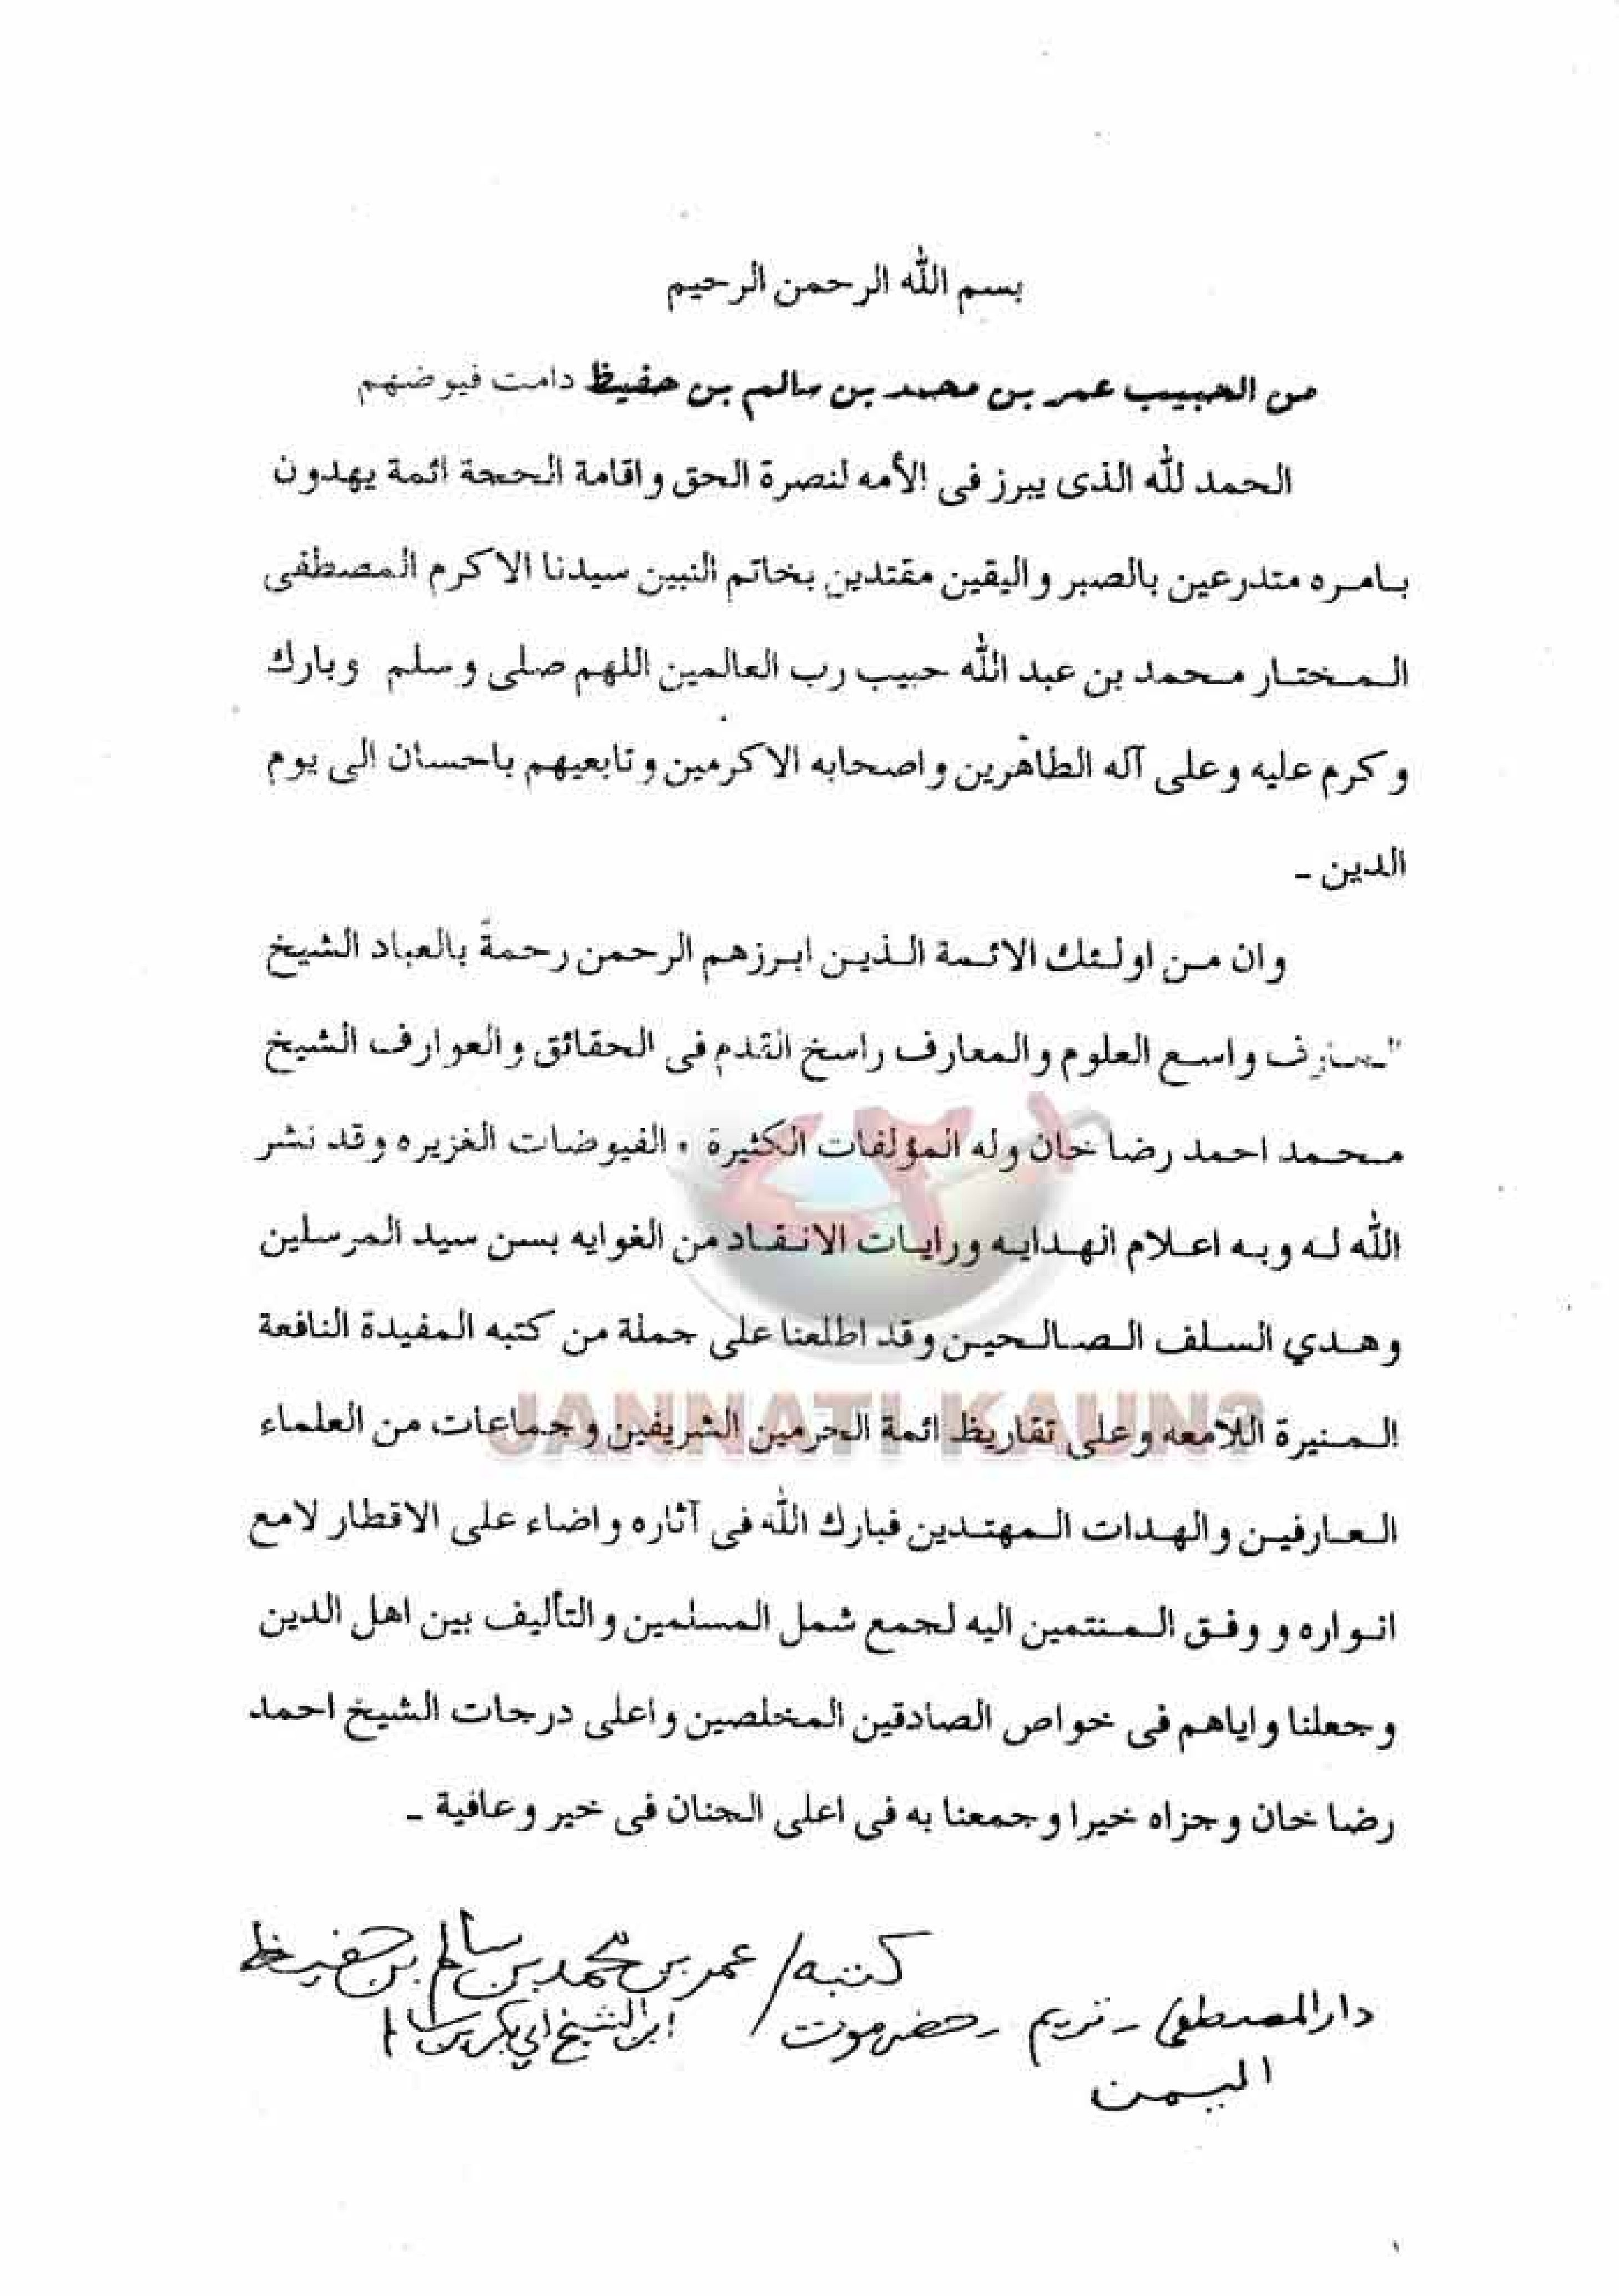 بسم الله الرحمن الرحيم
من الحبيب عمر بن محمد بن سالم بن حفيظ دامت فيوضهم
الحمد لله الذى يبرز فى الأمه لنصرة الحق و اقامة الحجة ائمة يهدون
بامره متدرعين بالصبر و اليقين مقتدين بخاتم النبين سيدنا الاكرم المصطفى
المختار محمد بن عبد الله حبيب رب العالمين اللهم صلى و سلم وبارك
و كرم عليه و على آله الطاهرين و اصحابه الاكرمين و تابعيهم باحسان الى يوم
الدين ـ
و ان من اولئك الائمة الذين ابرزهم الرحمن رحمةً بالعباد الشيخ
العارف واسع العلوم والمعارف راسخ القدم فى الحقائق و العوارف الشيخ
محمد احمد رضا خان وله المؤلفات الكثيرة الفيوضات الغزيره وقد نشر
الله له وبه اعلام الهدايه ورايات الانقاد من الغوايه بسن سيد المرسلين
وهدي السلف الصالحين وقد اطلعنا على جملة من كتبه المفيدة النافعة
المنيرة اللامعه وعلى تقاريظ ائمة الحرمين الشريفين و جماعات من العلماء
العارفين والهدات المهتدين فبارك الله فى آثاره و اضاء على الاقطار لامع
انواره و وفق المنتمين اليه لجمع شمل المسلمين والتأليف بين اهل الدين
وجعلنا و اياهم فى خواص الصادقين المخلصين و اعلى درجات الشيخ احمد
رضا خان و جزاه خيرا و جمعنا به فى اعلى الجنان فى خير و عافية ـ
كتبه/ عمر بن محمد بن سالم بن حفيظ
ابن الشيخ ابي بكر بن سالم
دار المصطفى - تريم - حضرموت /
اليمن
JANNATI KAUN?
١